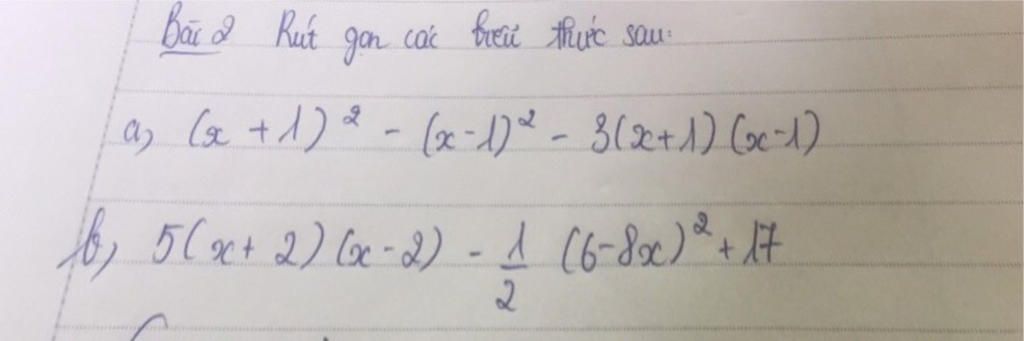 Bài 2 Rút gọn các biểu thức sau:
a, (x + 1)² - (x-1)² - 3(x+1)(x-1)
b, 5(x+ 2)(x-2) - 1/2 (6-8x)² + 17